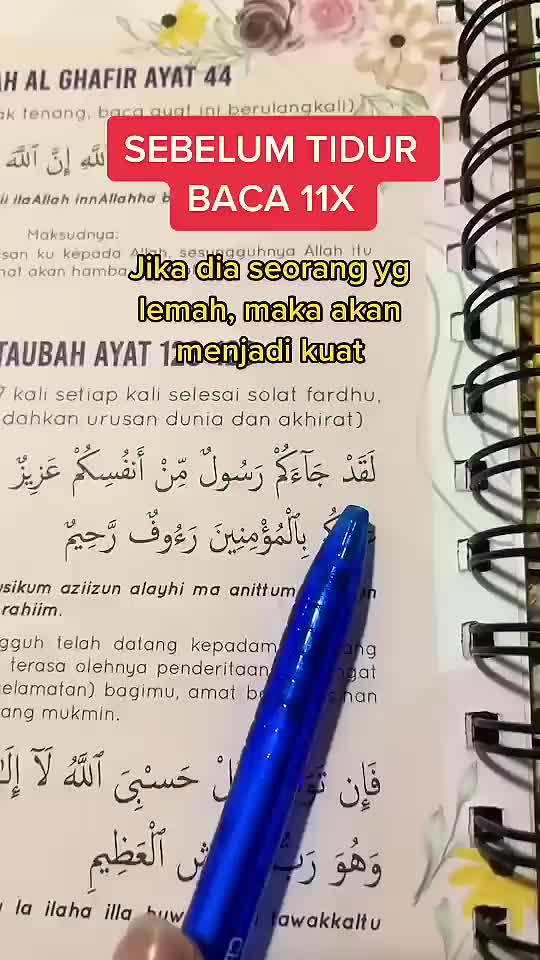 AH AL GHAFIR AYAT 44
tenang, baca ayat ini berulangkali)
ٱللَّهِ إِنَّ ٱللَّهَ
SEBELUM TIDUR
BACA 11X
ii ilaAllah innAllahha b
Maksudnya:
ku kepada Allah, sesungguhnya Allah itu
akan hamba
Jika dia seorang yg
lemah, maka akan
menjadi kuat
TAUBAH AYAT
7 kali setiap kali selesai solat fardhu,
dahkan urusan dunia dan akhirat)
لَقَدْ جَآءَكُمْ رَسُولٌ مِّنْ أَنفُسِكُمْ عَزِيزٌ
بِٱلْمُؤْمِنِينَ رَءُوفٌ رَّحِيمٌ
usikum aziizun alayhi ma anittum
rahiim.
gguh telah datang kepadam
terasa olehnya penderitaan
elamatan) bagimu, amat
ang mukmin.
فَإِن حَسْبِىَ ٱللَّهُ لَآ
وَهُوَ رَبُّ ٱلْعَظِيمِ
la ilaha illa huw tawakkaltu